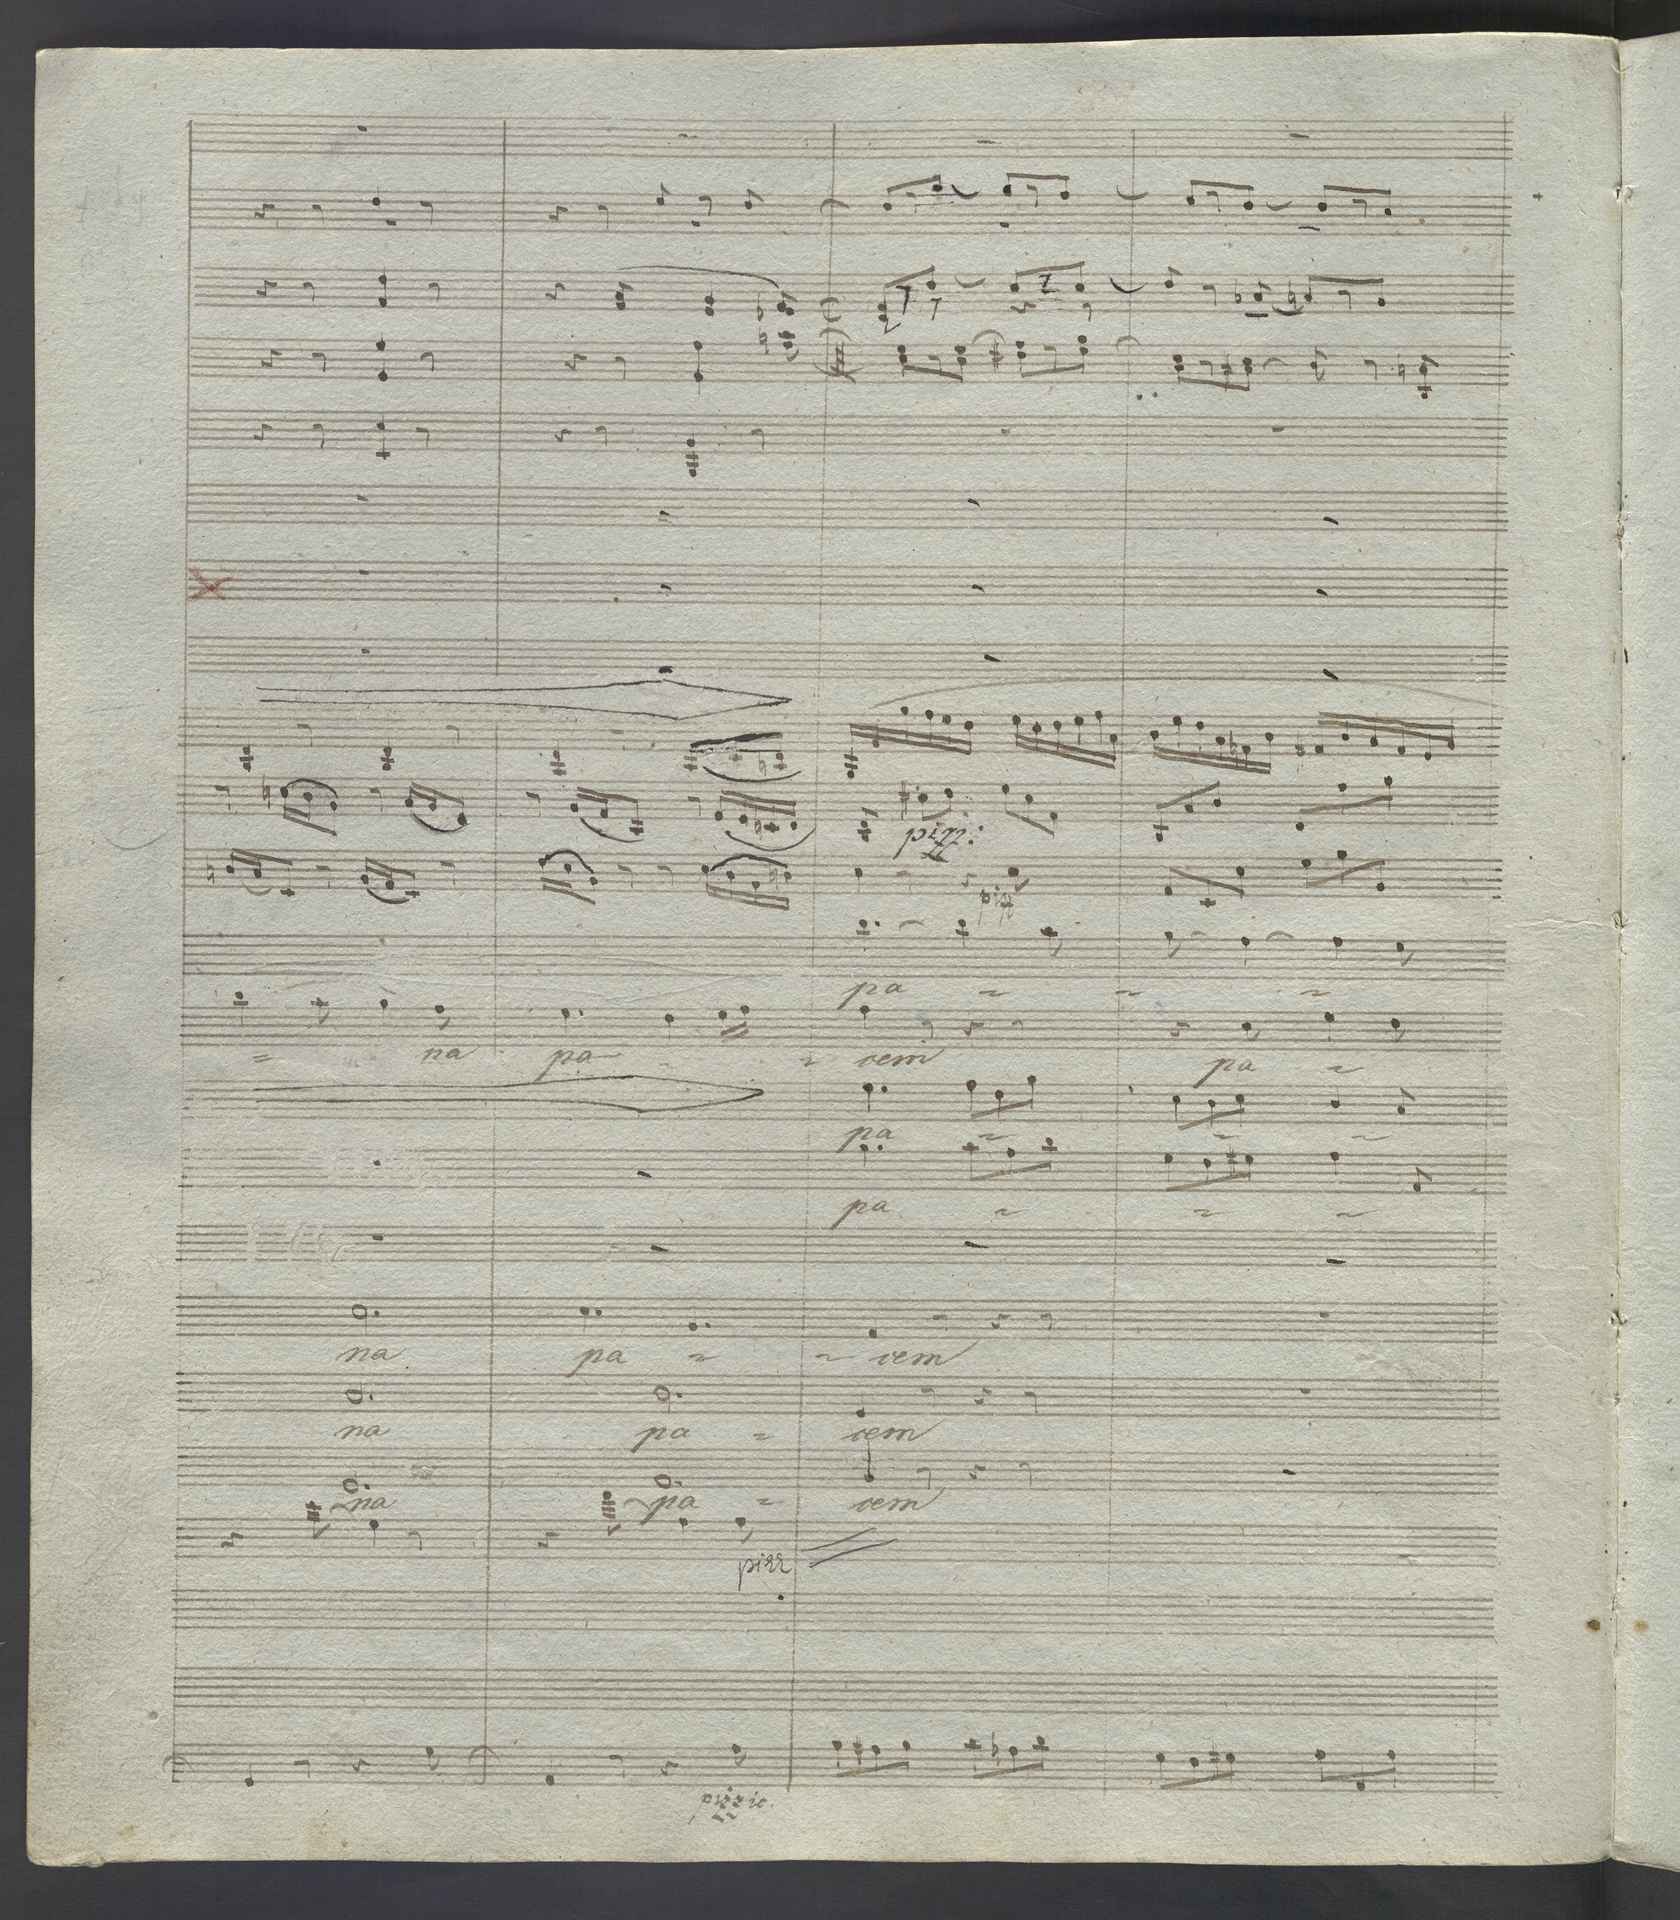 pizz:
pizz
pa = = =
= na pa = cem pa =
pa = = =
pa = = =
na pa = = cem
na pa = cem
na pa = cem
pizz
pizzic.